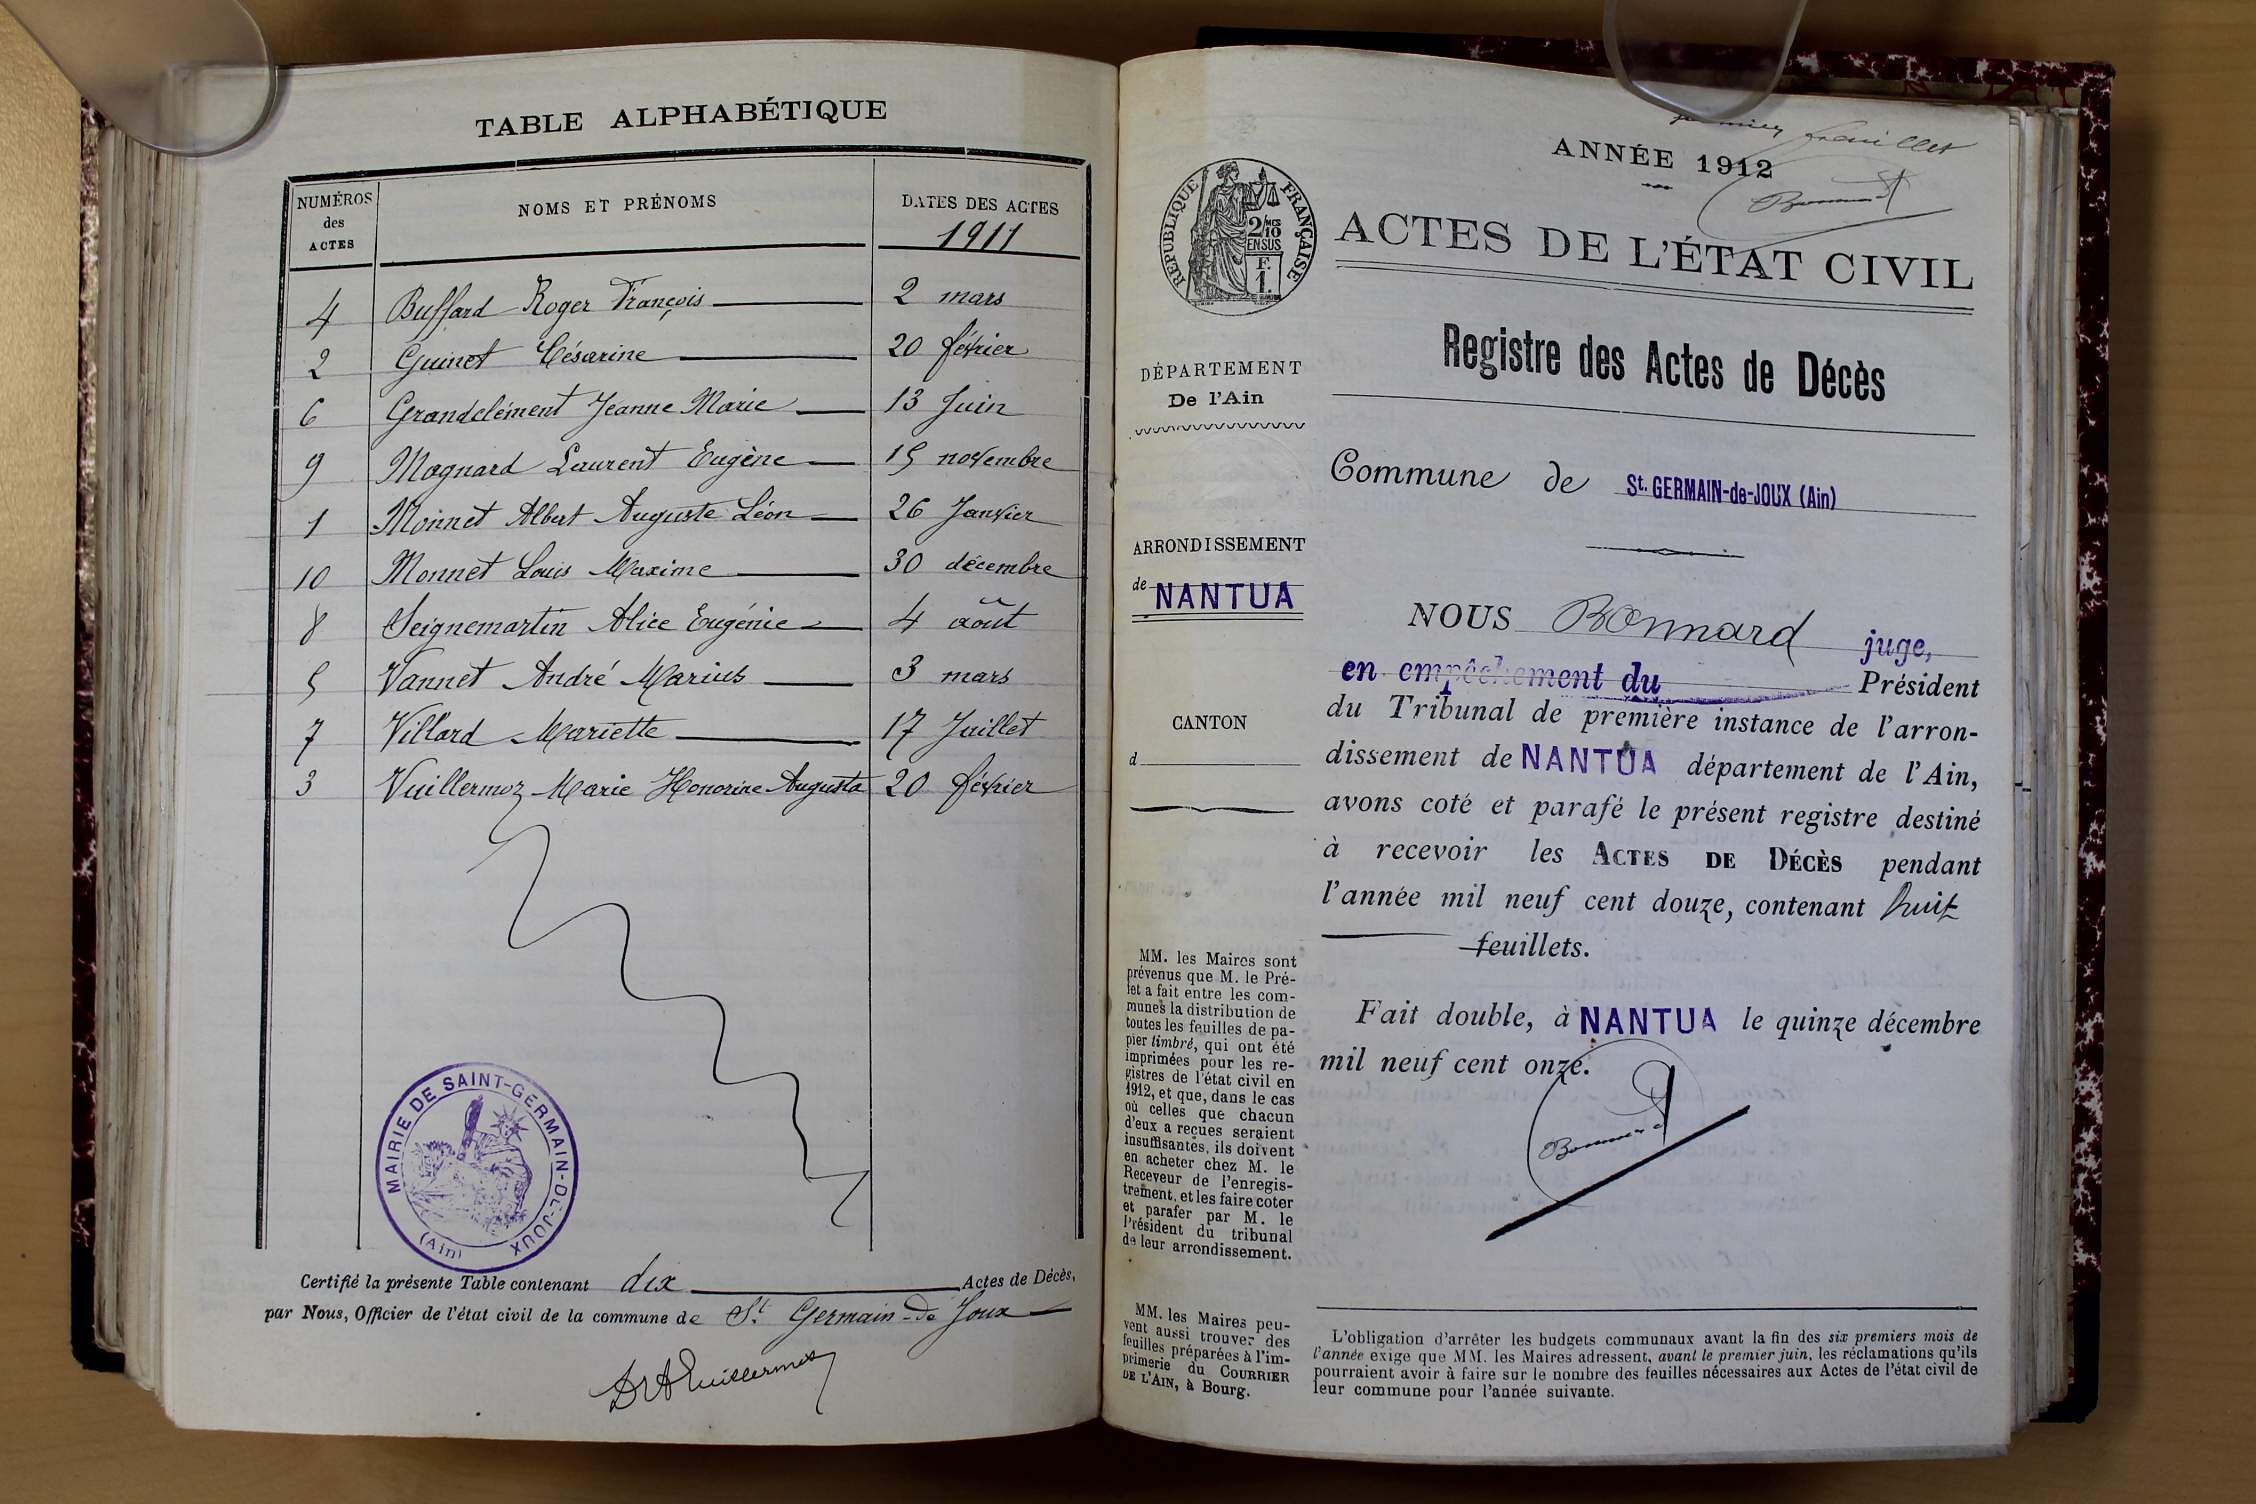 TABLE ALPHABÉTIQUE
NUMÉROS des ACTES
NOMS ET PRÉNOMS
DATES DES ACTES
1911
4 Buffard Roger François 2 mars
2 Guinet Césarine 20 février
6 Grandclément Jeanne Marie 13 Juin
9 Magnard Laurent Eugène 15 novembre
1 Monnet Albert Auguste Léon 26 Janvier
10 Monnet Louis Maxime 30 décembre
8 Seignemartin Alice Eugénie 4 août
5 Vannet André Marius 3 mars
7 Villard Mariette 17 Juillet
3 Vuillermoz Marie Honorine Augusta 20 février
MAIRIE DE SAINT-GERMAIN-DE-JOUX
(Ain)
Certifié la présente Table contenant dix Actes de Décès,
par Nous, Officier de l'état civil de la commune de St Germain-de Joux
premier feuillet
ANNÉE 1912
Bonnard
RÉPUBLIQUE FRANÇAISE
2/10 MES
EN SUS
F.
1.
ACTES DE L'ÉTAT CIVIL
Registre des Actes de Décès
DÉPARTEMENT
De l'Ain
Commune de St. GERMAIN-de-JOUX (Ain)
ARRONDISSEMENT
de NANTUA
CANTON
d
NOUS Bonnard juge,
en empêchement du Président
du Tribunal de première instance de l'arron-
dissement de NANTUA département de l'Ain,
avons coté et parafé le présent registre destiné
à recevoir les ACTES DE DÉCÈS pendant
l'année mil neuf cent douze, contenant huit
feuillets.
Fait double, à NANTUA le quinze décembre
mil neuf cent onze.
Bonnard
MM. les Maires sont
prévenus que M. le Pré-
fet a fait entre les com-
munes la distribution de
toutes les feuilles de pa-
pier timbré, qui ont été
imprimées pour les re-
gistres de l'état civil en
1912, et que, dans le cas
où celles que chacun
d'eux a reçues seraient
insuffisantes, ils doivent
en acheter chez M. le
Receveur de l'enregis-
trement, et les faire coter
et parafer par M. le
Président du tribunal
de leur arrondissement.
MM. les Maires peu-
vent aussi trouver des
feuilles préparées à l'im-
primerie du COURRIER
DE L'AIN, à Bourg.
L'obligation d'arrêter les budgets communaux avant la fin des six premiers mois de
l'année exige que MM. les Maires adressent, avant le premier juin, les réclamations qu'ils
pourraient avoir à faire sur le nombre des feuilles nécessaires aux Actes de l'état civil de
leur commune pour l'année suivante.